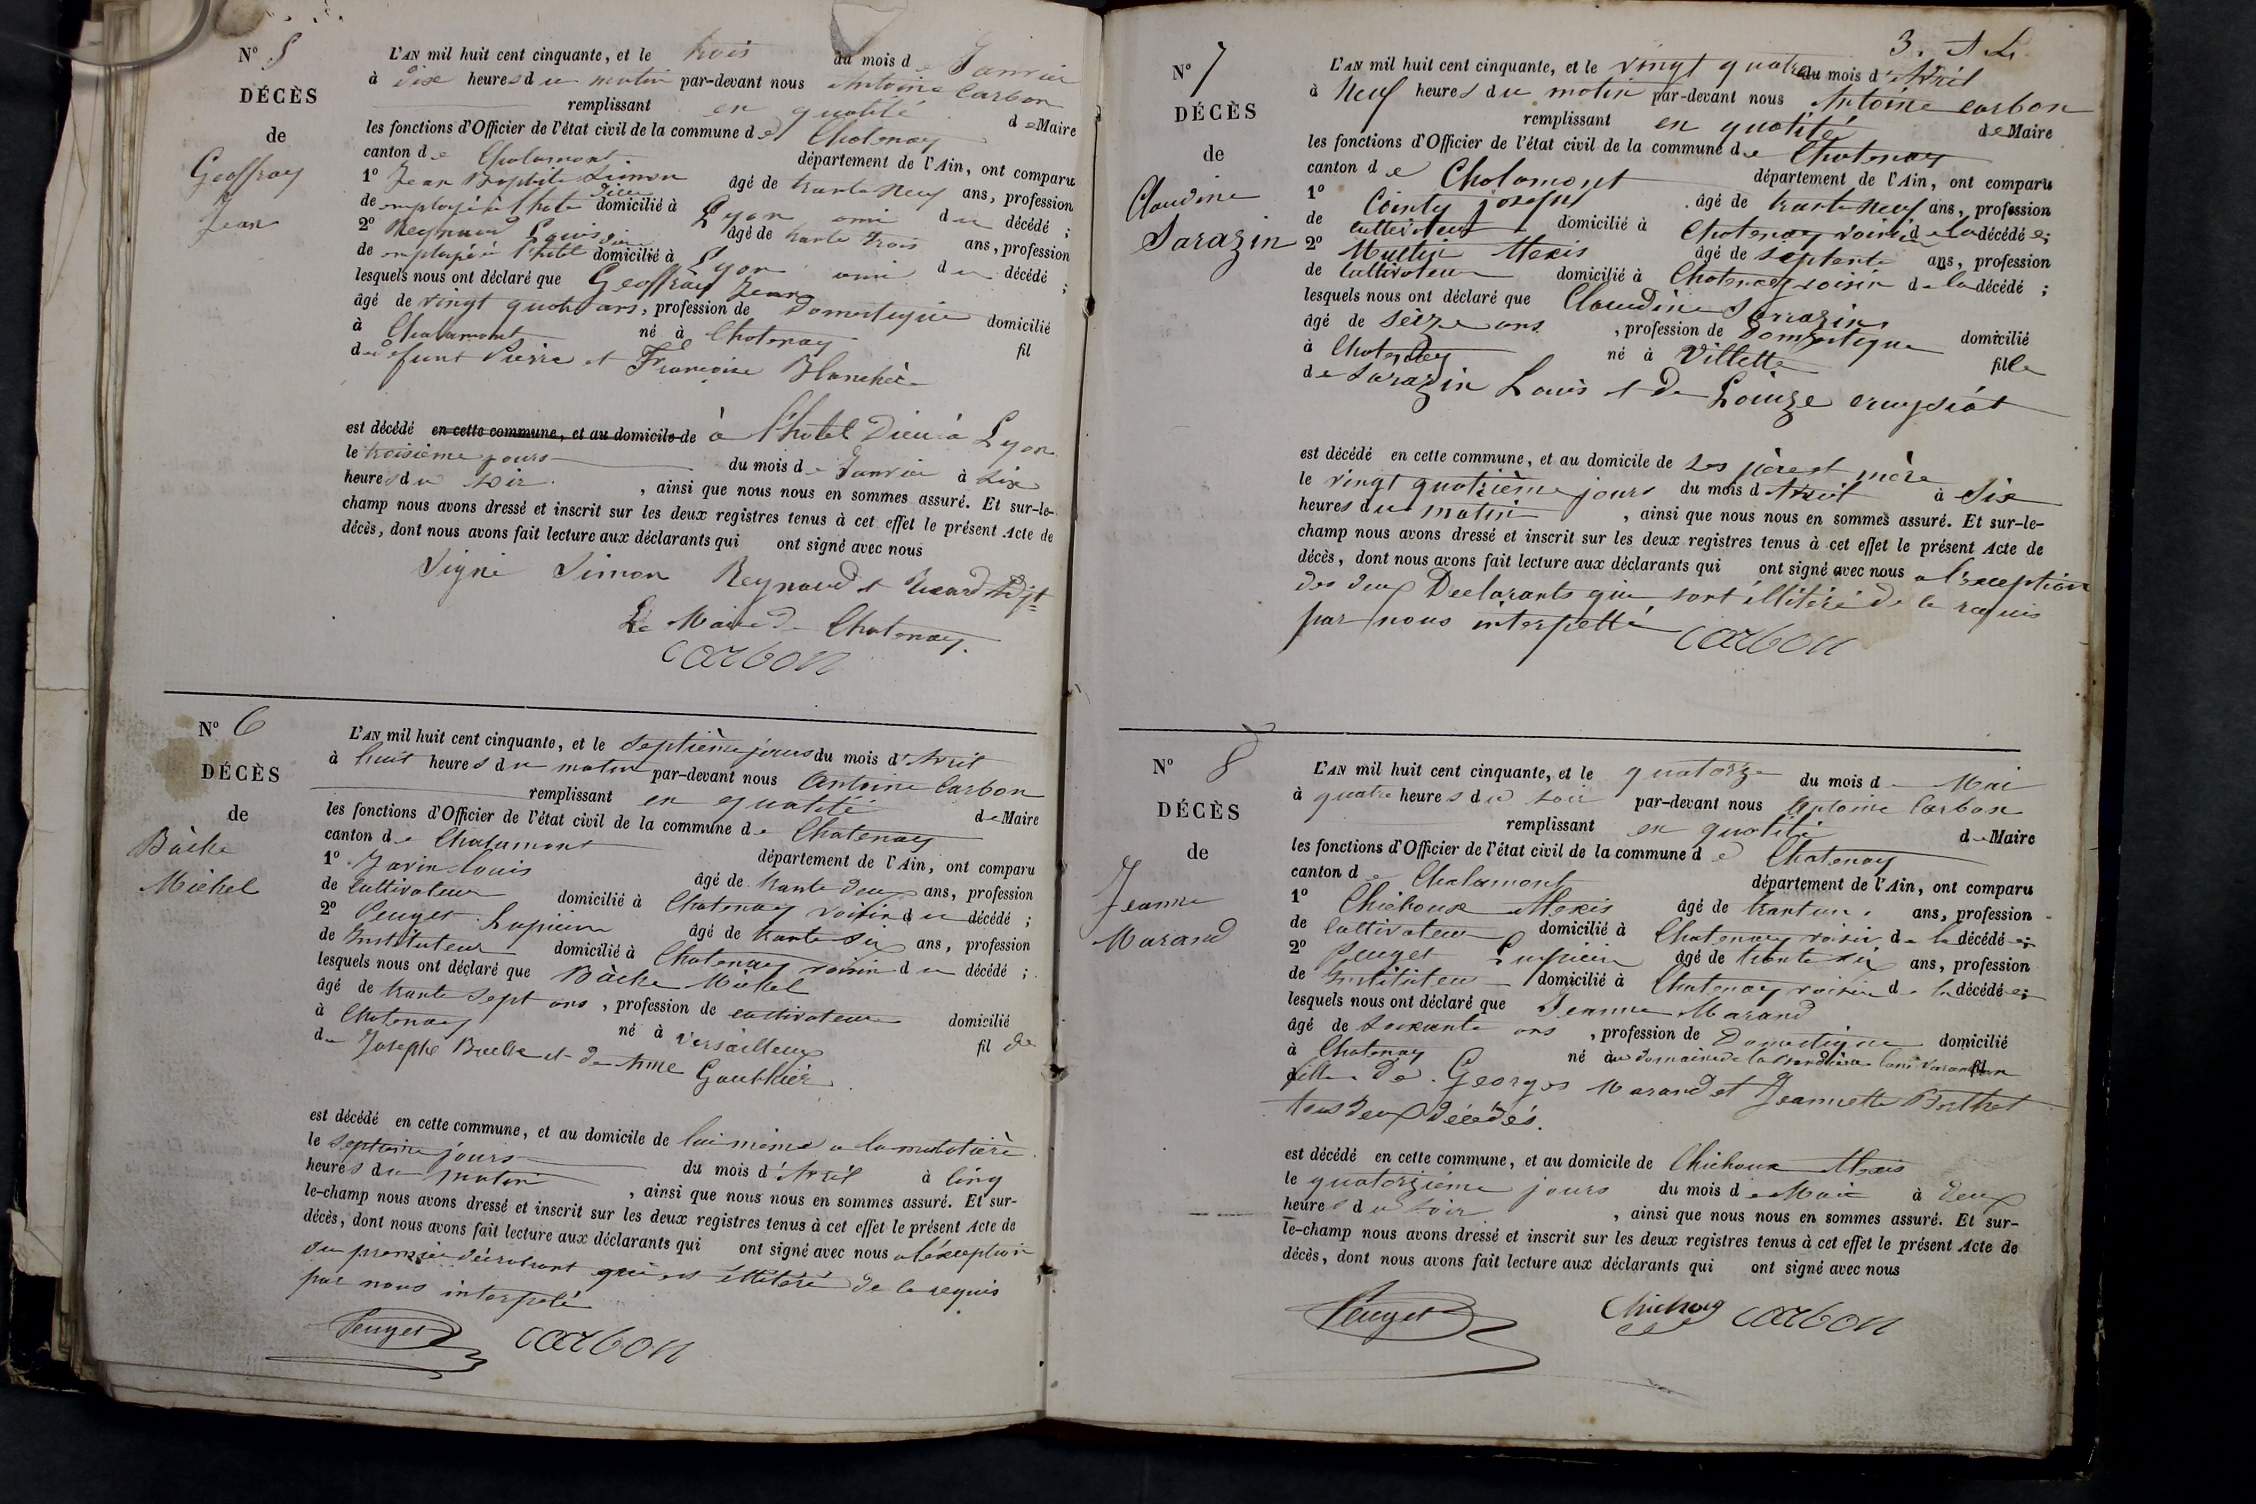 N° 5
DÉCÈS
de
Geoffray
Jean
L'AN mil huit cent cinquante, et le trois du mois de Janvier
à dix heures du matin par-devant nous Antoine Carbon
remplissant en qualité de Maire
les fonctions d'Officier de l'état civil de la commune de Chatenay
canton de Chalamont département de l'Ain, ont comparu
1° Jean Baptiste Simon âgé de trante neuf ans, profession
de employé à l'hotel dieu domicilié à Lyon ami du décédé ;
2° Reynaud Louis âgé de trante trois ans, profession
de employé à l'hotel dieu domicilié à Lyon ami du décédé ;
lesquels nous ont déclaré que Geoffray Jean
âgé de vingt quatre ans, profession de Domestique domicilié
à Chalamont né à Chatenay fil
de defunt Pierre et Françoise Blanchè
est décédé en cette commune, et au domicile de à l'hotel Dieu à Lyon
le troisième jours du mois de Janvier à six
heures du soir , ainsi que nous nous en sommes assuré. Et sur-le-
champ nous avons dressé et inscrit sur les deux registres tenus à cet effet le présent Acte de
décès, dont nous avons fait lecture aux déclarants qui ont signé avec nous
Signé Simon Reynaud et Adjt
Le Maire de Chatenay.
carbon
N° 6
DÉCÈS
de
Bàche
Michel
L'AN mil huit cent cinquante, et le septième jours du mois d'Avril
à huit heures du matin par-devant nous Antoine Carbon
remplissant en qualité de Maire
les fonctions d'Officier de l'état civil de la commune de Chatenay
canton de Chalamont département de l'Ain, ont comparu
1° Javin Louis âgé de trante deux ans, profession
de Cultivateur domicilié à Chatenay voisin du décédé ;
2° Peuget Lupicin âgé de trante six ans, profession
de Instituteur domicilié à Chatenay voisin du décédé ;
lesquels nous ont déclaré que Bàche Michel
âgé de trante sept ans , profession de cultivateur domicilié
à Chatenay né à Versailleux fil de
de Josephe Bache et de Anne Gauthier
est décédé en cette commune, et au domicile de lui mème a la
le septième jours du mois d'Avril à Cinq
heures du matin , ainsi que nous nous en sommes assuré. Et sur-
le-champ nous avons dressé et inscrit sur les deux registres tenus à cet effet le présent Acte de
décès, dont nous avons fait lecture aux déclarants qui ont signé avec nous a l'éxception
du premier déclarant qui est illitéré de le requis
par nous interpelé
Peuget carbon
3. A L.
N° 7
DÉCÈS
de
Claudine
Sarazin
L'AN mil huit cent cinquante, et le vingt quatre du mois d'Avril
à Neuf heures du matin par-devant nous Antoine carbon
remplissant en qualité de Maire
les fonctions d'Officier de l'état civil de la commune de Chatenay
canton de Chalamont département de l'Ain, ont comparu
1° Cointy joseph âgé de trante neuf ans, profession
de cultivateur domicilié à Chatenay voisin de la décédée ;
2° Multin Alexis âgé de septante ans, profession
de Cultivateur domicilié à Chatenay voisin de la décédé ;
lesquels nous ont déclaré que Claudine Sarrazin
âgé de seize ans , profession de Domestique domicilié
à Chatenay né à Villette fille
de Sarazin Louis et de Louize
est décédé en cette commune, et au domicile de ses père et mère
le vingt quatrième jours du mois d'Avril à Six
heures du matin , ainsi que nous nous en sommes assuré. Et sur-le-
champ nous avons dressé et inscrit sur les deux registres tenus à cet effet le présent Acte de
décès, dont nous avons fait lecture aux déclarants qui ont signé avec nous a l'exception
des deux Declarants qui sont illitéré de le requis
par nous interpellé carbon
N° 8
DÉCÈS
de
Jeanne
Marand
L'AN mil huit cent cinquante, et le quatorze du mois de Mai
à quatre heures du soir par-devant nous Antoine Carbon
remplissant en qualité de Maire
les fonctions d'Officier de l'état civil de la commune de Chatenay
canton de Chalamont département de l'Ain, ont comparu
1° Chichoux Alexis âgé de trantun ans, profession
de Cultivateur domicilié à Chatenay voisin de la décédée ;
2° Peuget Lupicin âgé de trante six ans, profession
de Instituteur domicilié à Chatenay voisin de la décédée ;
lesquels nous ont déclaré que Jeanne Marand
âgé de soixante ans , profession de Domestique domicilié
à Chatenay né au domaine de la fil
fille de Georges Marand et Jeannette Berthet
tous deux décédés.
est décédé en cette commune, et au domicile de Chichoux Alexis
le quatorzième jours du mois de Mai à deux
heures du soir , ainsi que nous nous en sommes assuré. Et sur-
le-champ nous avons dressé et inscrit sur les deux registres tenus à cet effet le présent Acte de
décès, dont nous avons fait lecture aux déclarants qui ont signé avec nous
Peuget Chichoux carbon